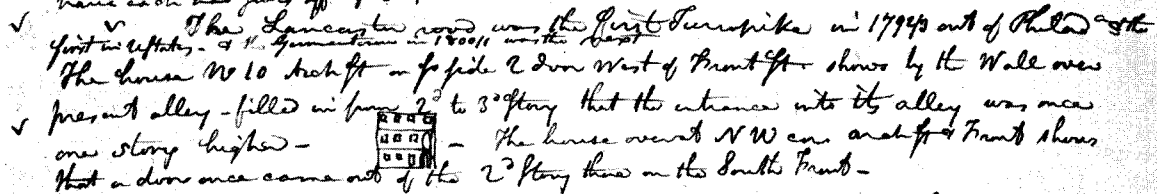 The Lancaster road was the first Turnpike in 1792/3 out of Philad & the
first in UStates - & Germantown in 1800/1 was the next
The house No 10 Arch St on So side 2 doors West of Front St - shows by the Wall over
present alley - filled in from 2d to 3d Story that the entrance into its alley was once
one story higher - - The house over at NW cor Arch St & Front shows
that a door once came out of the 2d Story there on the South Front -